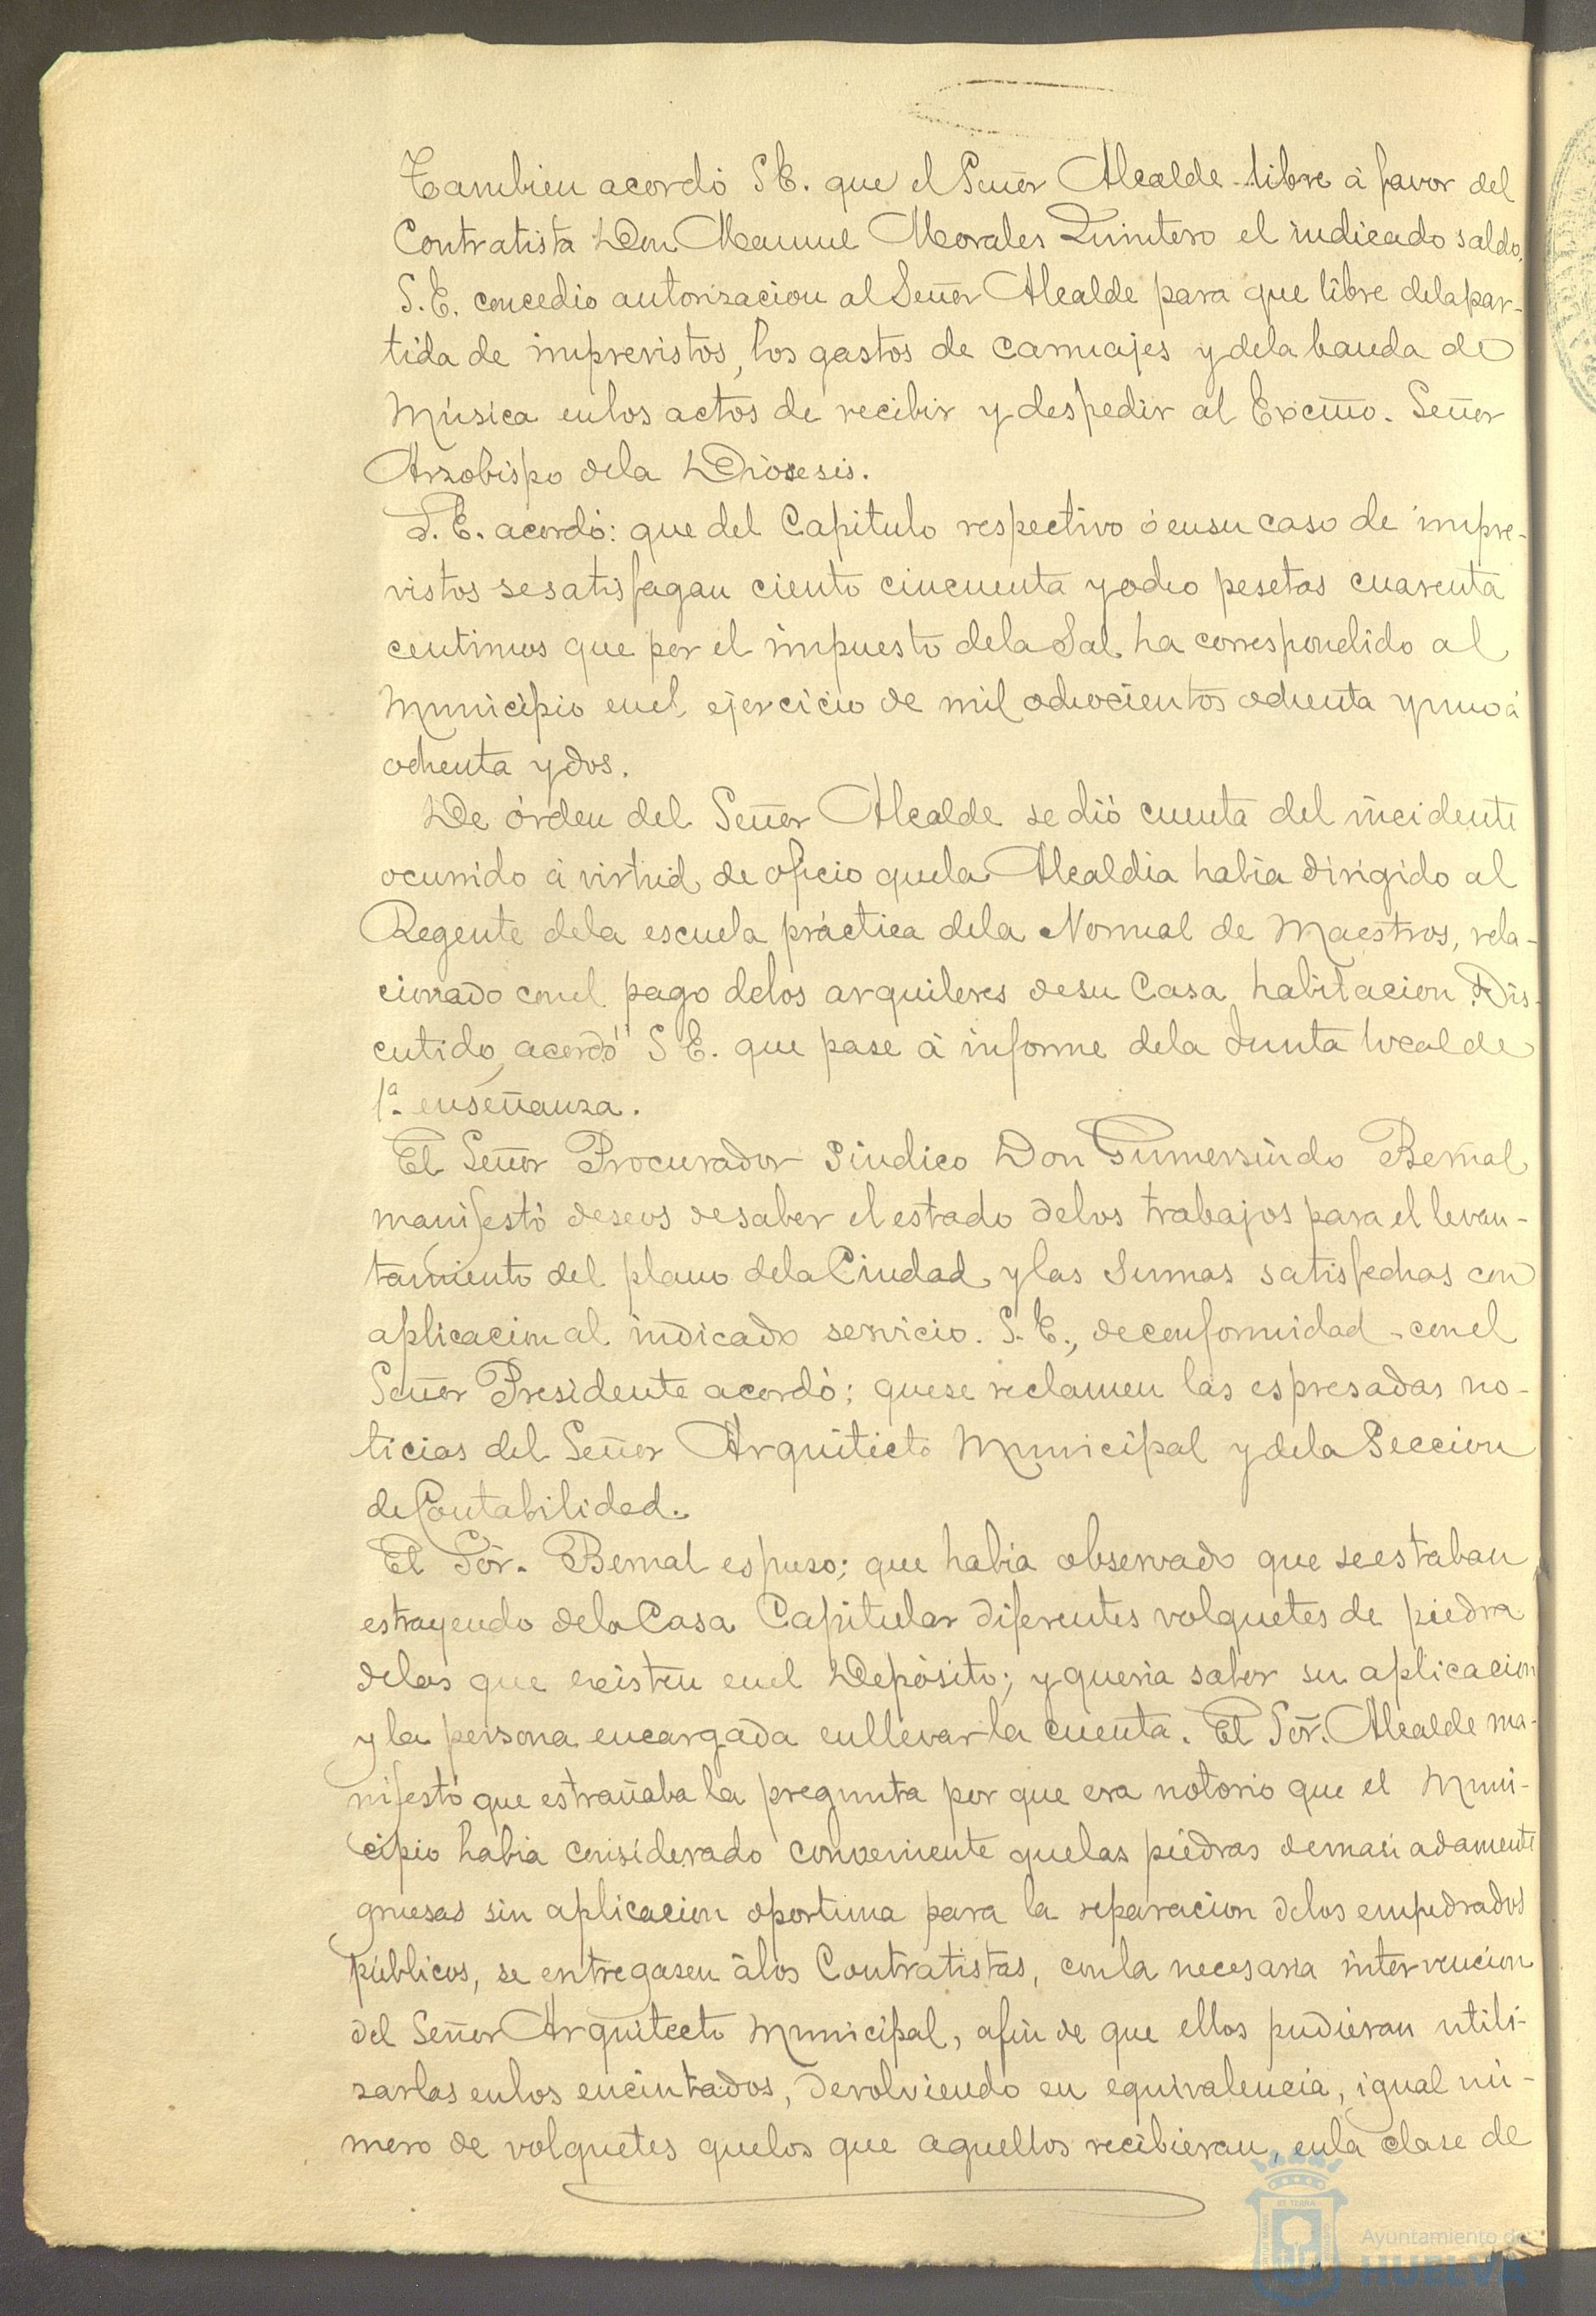 Tambien acordó S E. que el Señor Alcalde libre á favor del
Contratista Don Manuel Morales Quintero el indicado saldo.
S. E. concedio autorizacion al Señor Alcalde para que libre dela par-
tida de imprevistos, los gastos de carruajes y dela banda de
Música enlos actos de recibir y despedir al Excmo. Señor
Arzobispo dela Diócesis.
S. E. acordó: que del Capitulo respectivo ó ensu caso de impre-
vistos sesatisfagan ciento cincuenta y ocho pesetas cuarenta
centimos que por el impuesto dela Sal ha correspondido al
Municipio enel ejercicio de mil ochocientos ochenta y uno á
ochenta y dos.
De órden del Señor Alcalde se dió cuenta del incidente
ocurrido á virtud de oficio quela Alcaldia habia dirigido al
Regente dela escuela práctica dela Normal de Maestros, rela-
cionado conel pago delos arquileres desu Casa habitacion. Dis-
cutido, acordó S E. que pase á informe dela Junta local de
1ª enseñanza.
El Señor Procurador Sindico Don Gumersindo Bernal
manifestó deseos desaber el estado delos trabajos para el levan-
tamiento del plano dela Ciudad y las sumas satisfechas con
aplicacion al indicado servicio. S. E., deconformidad conel
Señor Presidente acordó; quese reclamen las espresadas no-
ticias del Señor Arquitecto Municipal y dela Seccion
de Contabilidad.
El Sōr. Bernal espuso; que habia observado que seestaban
estrayendo dela Casa Capitular diferentes volquetes de piedra
delas que existen enel Depósito; y queria saber su aplicacion
y la persona encargada enllevar la cuenta. El Sōr. Alcalde ma-
nifestó que estrañaba la pregunta por que era notorio que el Muni-
cipio habia considerado conveniente quelas piedras demasiadamente
gruesas sin aplicacion oportuna para la reparacion delos empedrados
públicos, se entregasen álos Contratistas, conla necesaria intervencion
del Señor Arquitecto Municipal, afin de que ellos pudieran utili-
zarlas enlos encintados, devolviendo en equivalencia, igual nú-
mero de volquetes quelos que aquellos recibieran, enla clase de
Ayuntamiento de
HUELVA